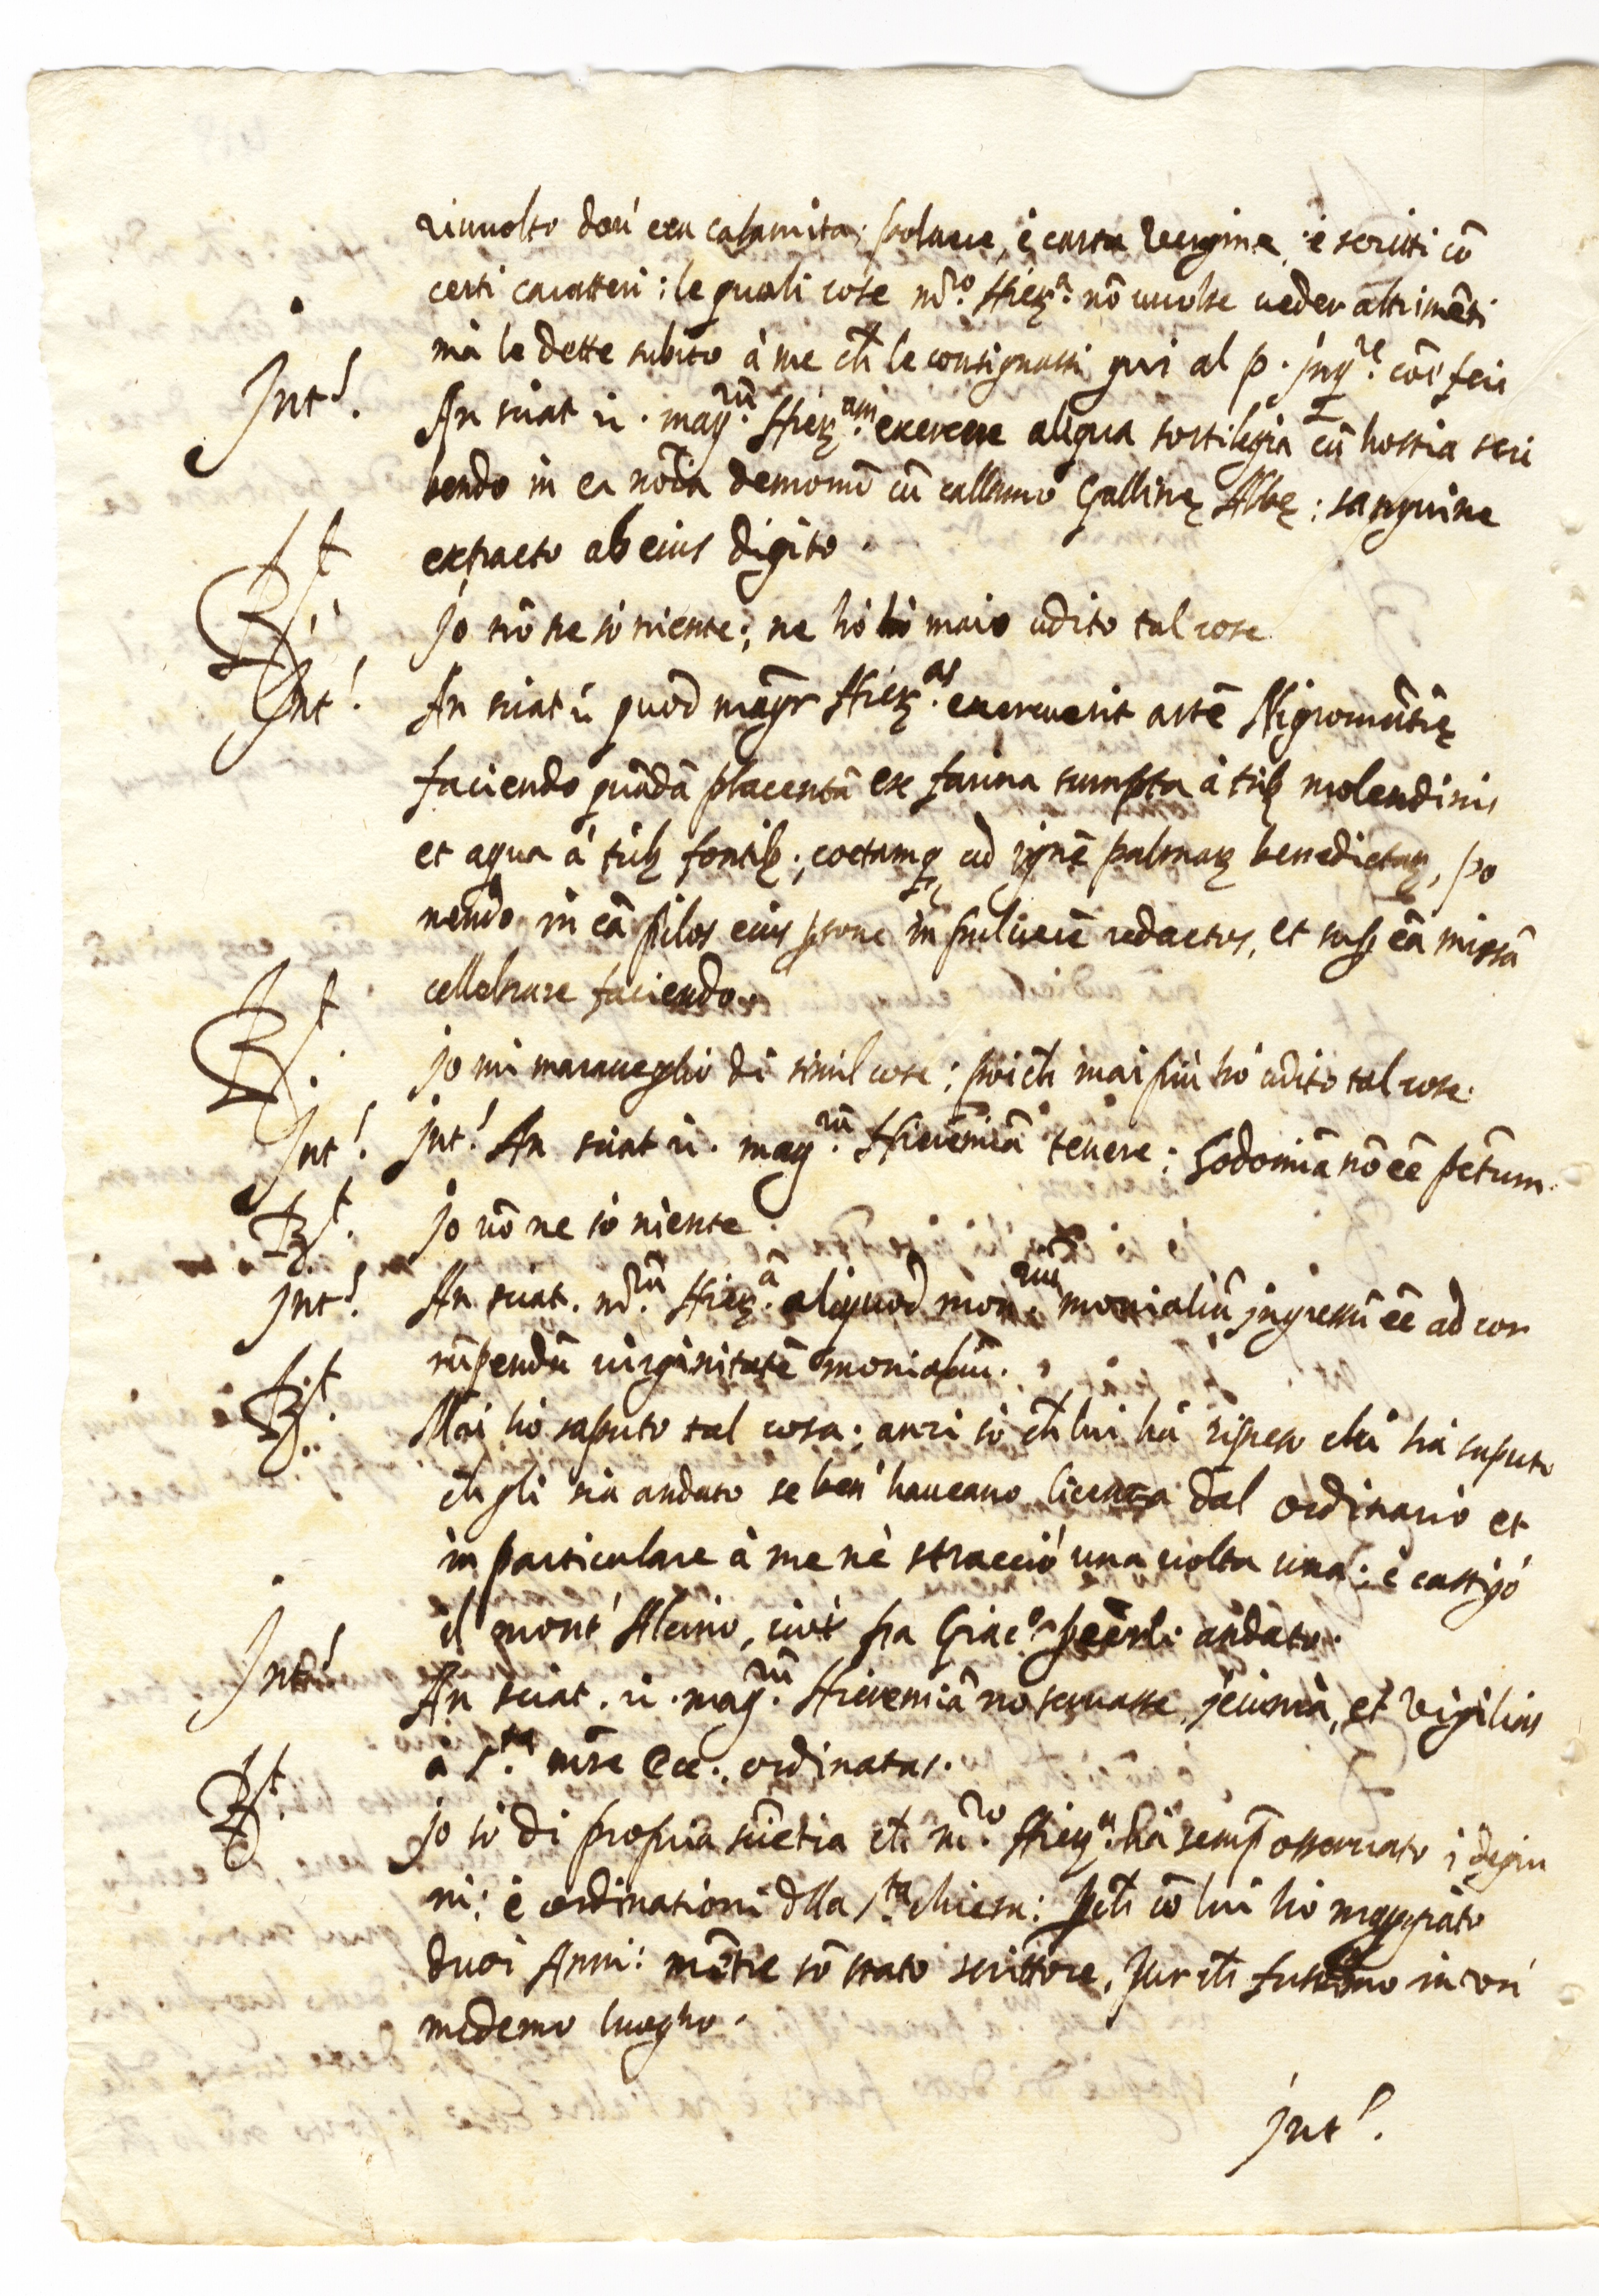 rivuolto dov' era calamita: polvere, è carta Vergine, è scritti cõ
certi caratteri: le quali cose m̃.ro Hier.a nõ vuolse veder altrimẽti
mà le dette subito à me ch̃ le consignassi qui al p. jnq.re cosi feci
Jnt.s An sciat ii. mag.rũ Hier.am exercere aliqua sortilegia cũ hostia scri
bendo in ea noĩa demonũ cũ callamo Gallinę Albę: sanguine
extracto ab eius digito.
R.t Jo nõ ne sò niente; ne hò mai udito tal cose
Jnt.s An sciat ii quod mag̃r Hier.as exercuerit artẽ Nigromãtię
faciendo quãdã placentã ex farina sumpta à trib. molendinis
et aqua à trib. fontib.; coctamq. ad ignẽ palmar. benedictar., po
nendo in eã pilos eius psone in pulverẽ redactos, et sup eã missã
cellebrare faciendo.
R.t Jo mi maraveglio di simil cose: poich̃ mai piu hò udito tal cose.
Jnt.s Jnt.s An sciat ii. mag.rũ Hieremiã tenere: Sodomiã nõ eẽ pctũm.
R.t Jo nõ ne sò niente.
Jnt.s An sciat. m̃.rũ Hier.ã aliquod mon.riũ monialiũ jngressũ eẽ ad cor
rũpendũ virginitatẽ monialiũ.
R.t Mai hò saputo tal cosa: anzi sò ch̃ lui hà ripreso chi hà saputo
ch̃ gli sia andato se ben' haveano licenza dal ordinario et
in particulare à me nè stracciò una volta una: è castigò
il mont' Alcino, cioè fra Giac.o p eẽrli andato.
Jnt.s An sciat. ii. mag.rũ Hieremiã nõ servasse jeiunia, et vigilias
a S.ta mr̃e Ecc. ordinatas.
R.t Jo sò di propria sciẽtia ch̃ m̃.ro Hier.a hà semp̃ osservato i degiu
ni: è ordinationi dlla S.ta chiesa: pch̃ cõ lui hò magnato
duoi Anni: mẽtre sõ stato scrittore, pur ch̃ fussimo in un'
medemo luogho.
Jnt.s